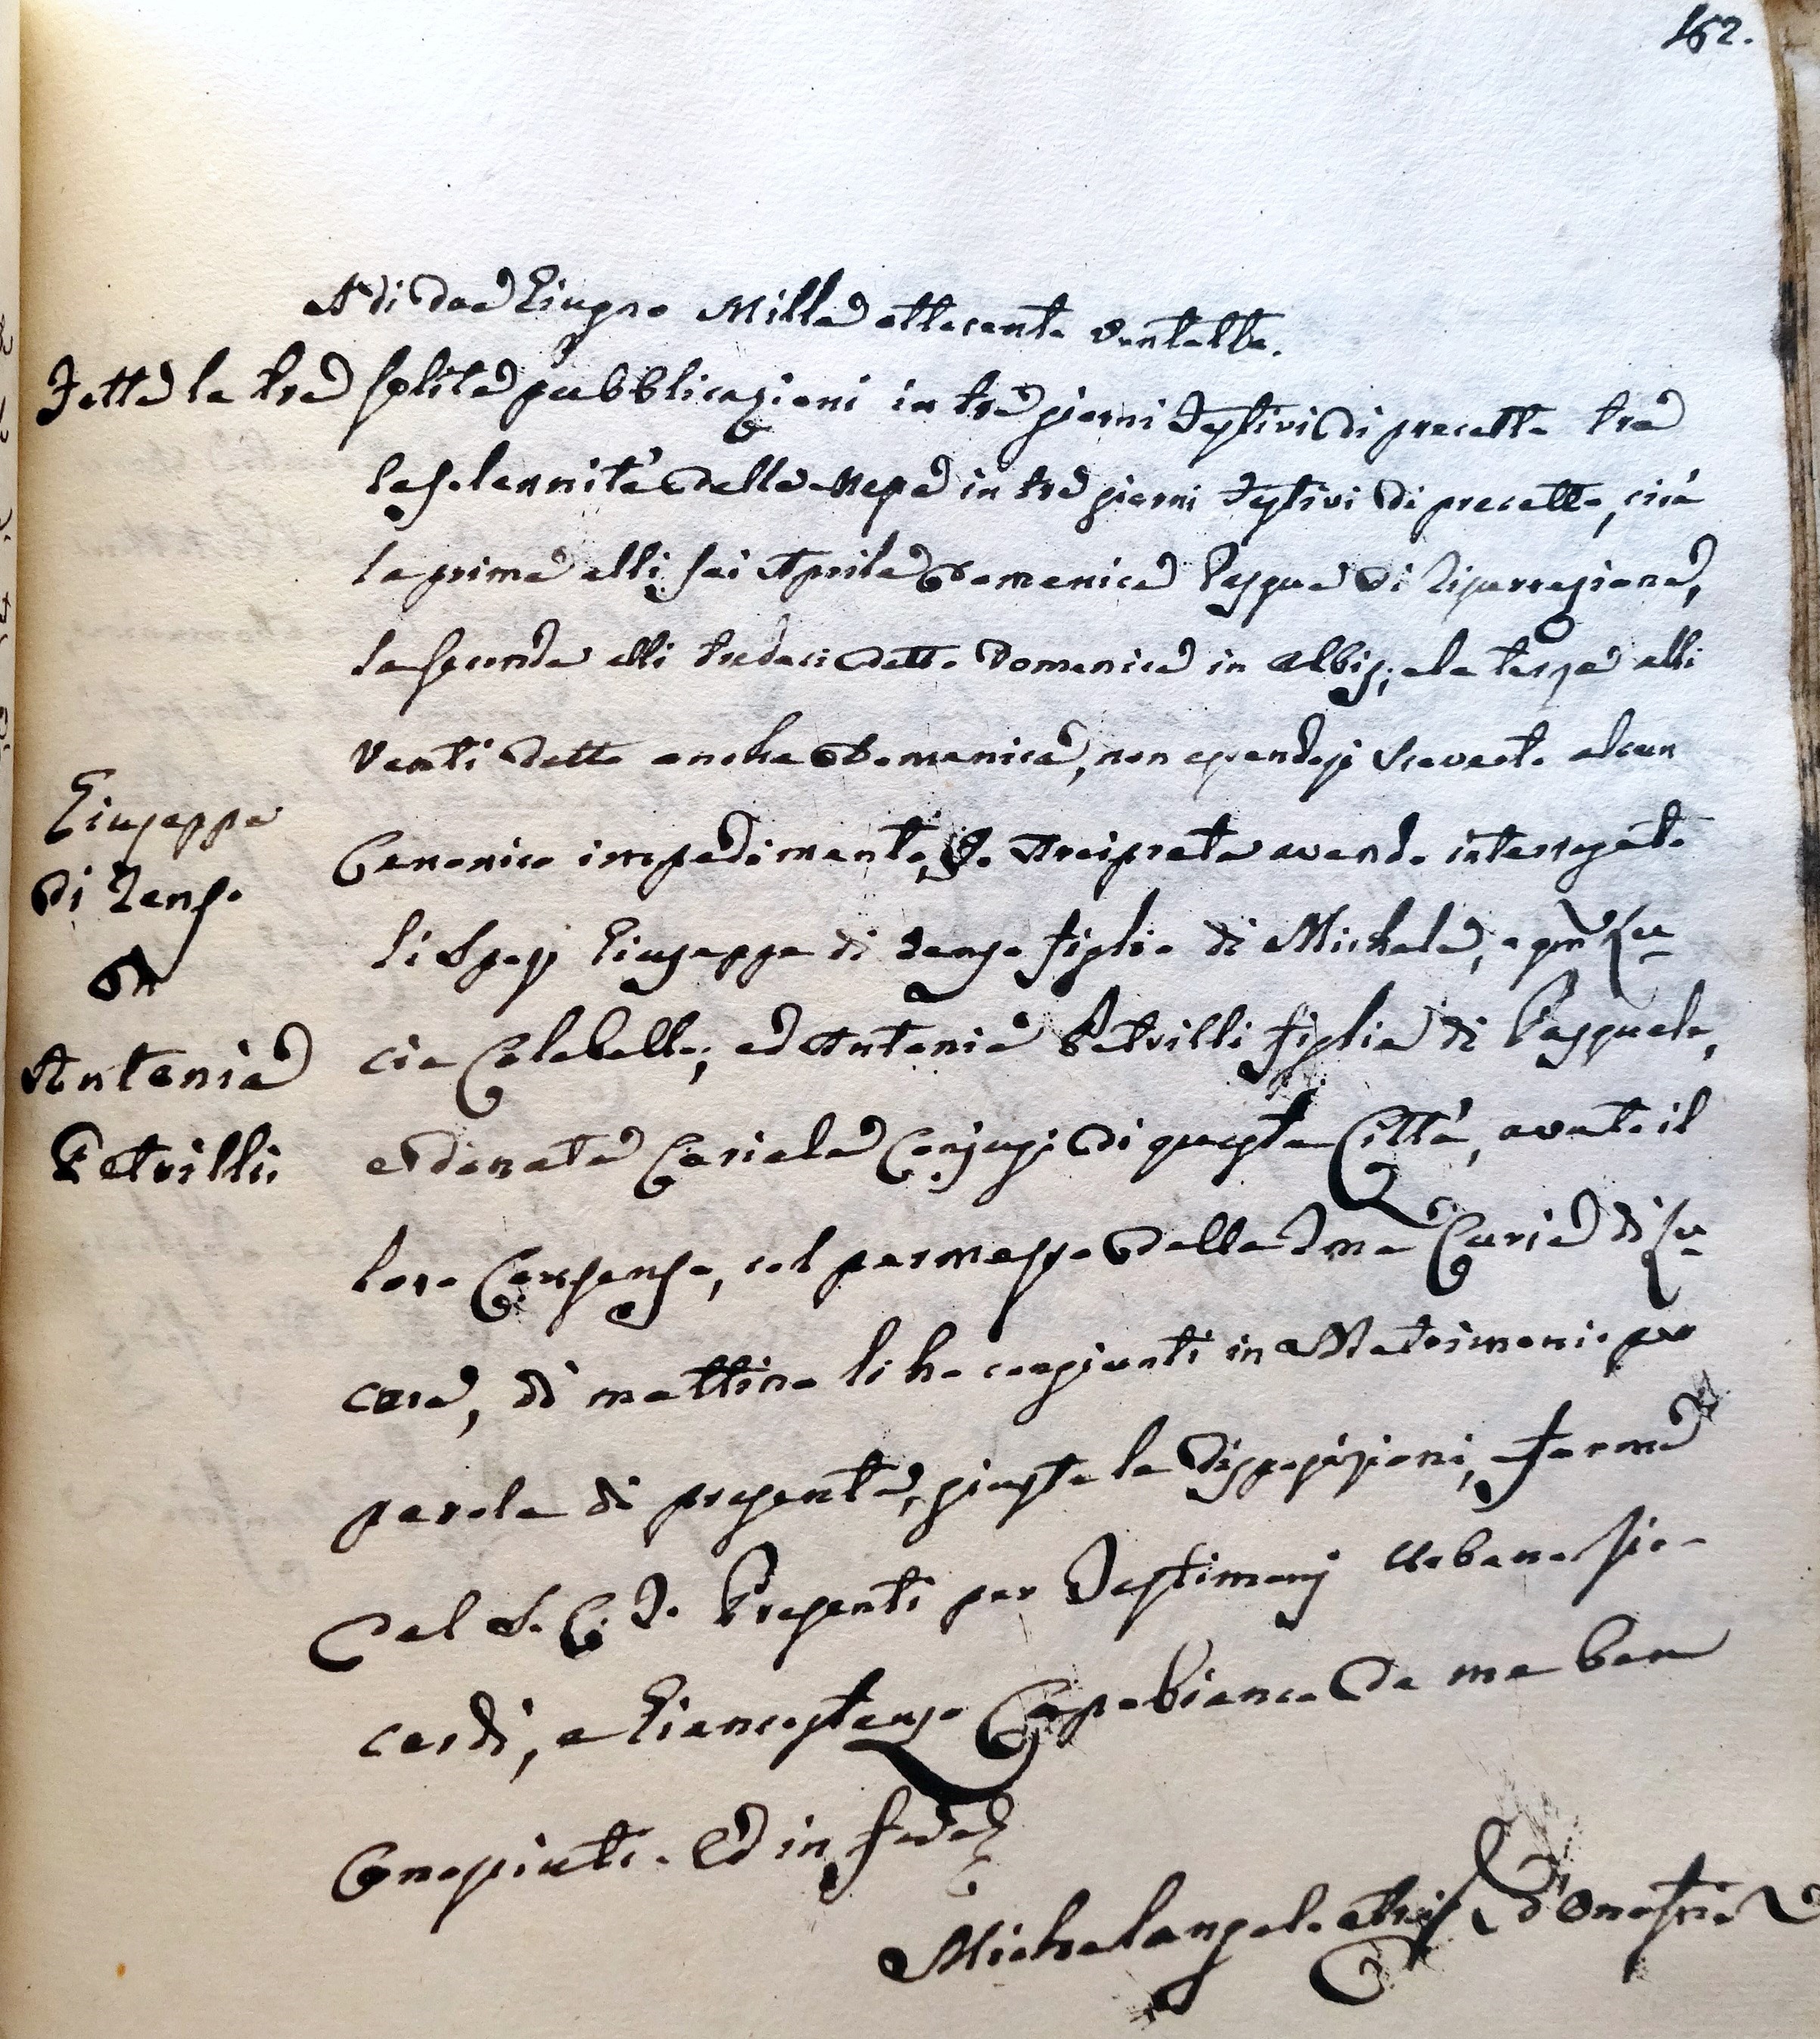 162.
A di due Giugno Mille ottocento ventotto.
Fatte le tre solite pubblicazioni in tre giorni Festivi di precetto tra
la solennità della Messa in tre giorni Festivi di precetto, cioè
la prima alli sei Aprile Domenica Pasqua di Risurrezione,
la seconda alli tredeci detto Domenica in Albis; e la terza alli
venti detto anche Domenica, non essendosi scoverto alcun
Canonico impedimento, Io Arciprete avendo interrogato
li Sposi Giuseppe di Renzo figlio di Michele, e qm Lu-
cia Colabella; ed Antonia Petrilli figlia di Pasquale,
e Donata Cariela Conjugi di questa Città, avuto il
loro Consenso, col permesso della Rma Curia di Lu-
cera, di mattina li ho congiunti in Matrimonio per
parola di presente, giusta le disposizioni, e forma
del S. C. T. Presenti per Testimonj Urbano Pic-
cardi, e Giancostanzo Capobianco da me ben
Conosciuti. Ed in fede
Michelangelo Arcip. D'Onofrio
Giuseppe
di Renzo
ed
Antonia
Petrilli